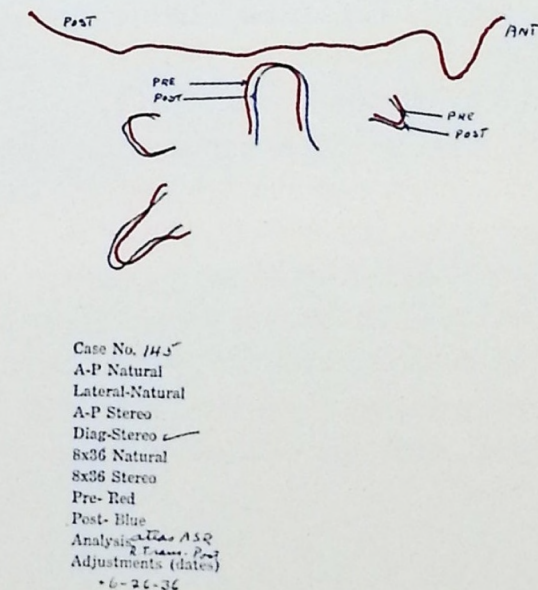 POST
ANT
PRE
POST
PRE
POST
Case No. 145
A-P Natural
Lateral-Natural
A-P Stereo
Diag-Stereo ✓
8x36 Natural
8x36 Stereo
Pre- Red
Post- Blue
Analysis atlas ASR
R Trans. Post
Adjustments (dates)
6-26-36